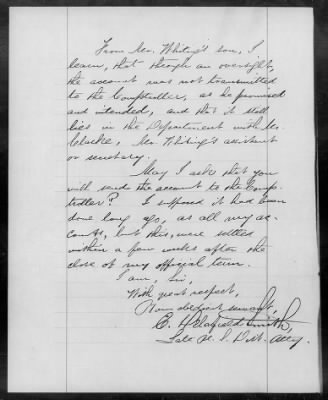 From Mr. Whiting's son, I
learn, that through an oversight,
the account was not transmitted
to the Comptroller, as he promised
and intended, and that it still
lies in the Department with Mr.
Clarke, Mr. Whiting's assistant
or secretary.
May I ask that you
will send the account to the Comp-
troller? I supposed it had been
done long ago, as all my ac-
counts, but this, were settled
within a few weeks after the
close of my official term.
I am, Sir,
With great respect,
Your obedient servant,
E. Delafield Smith,
Late U. S. Dist. Atty.